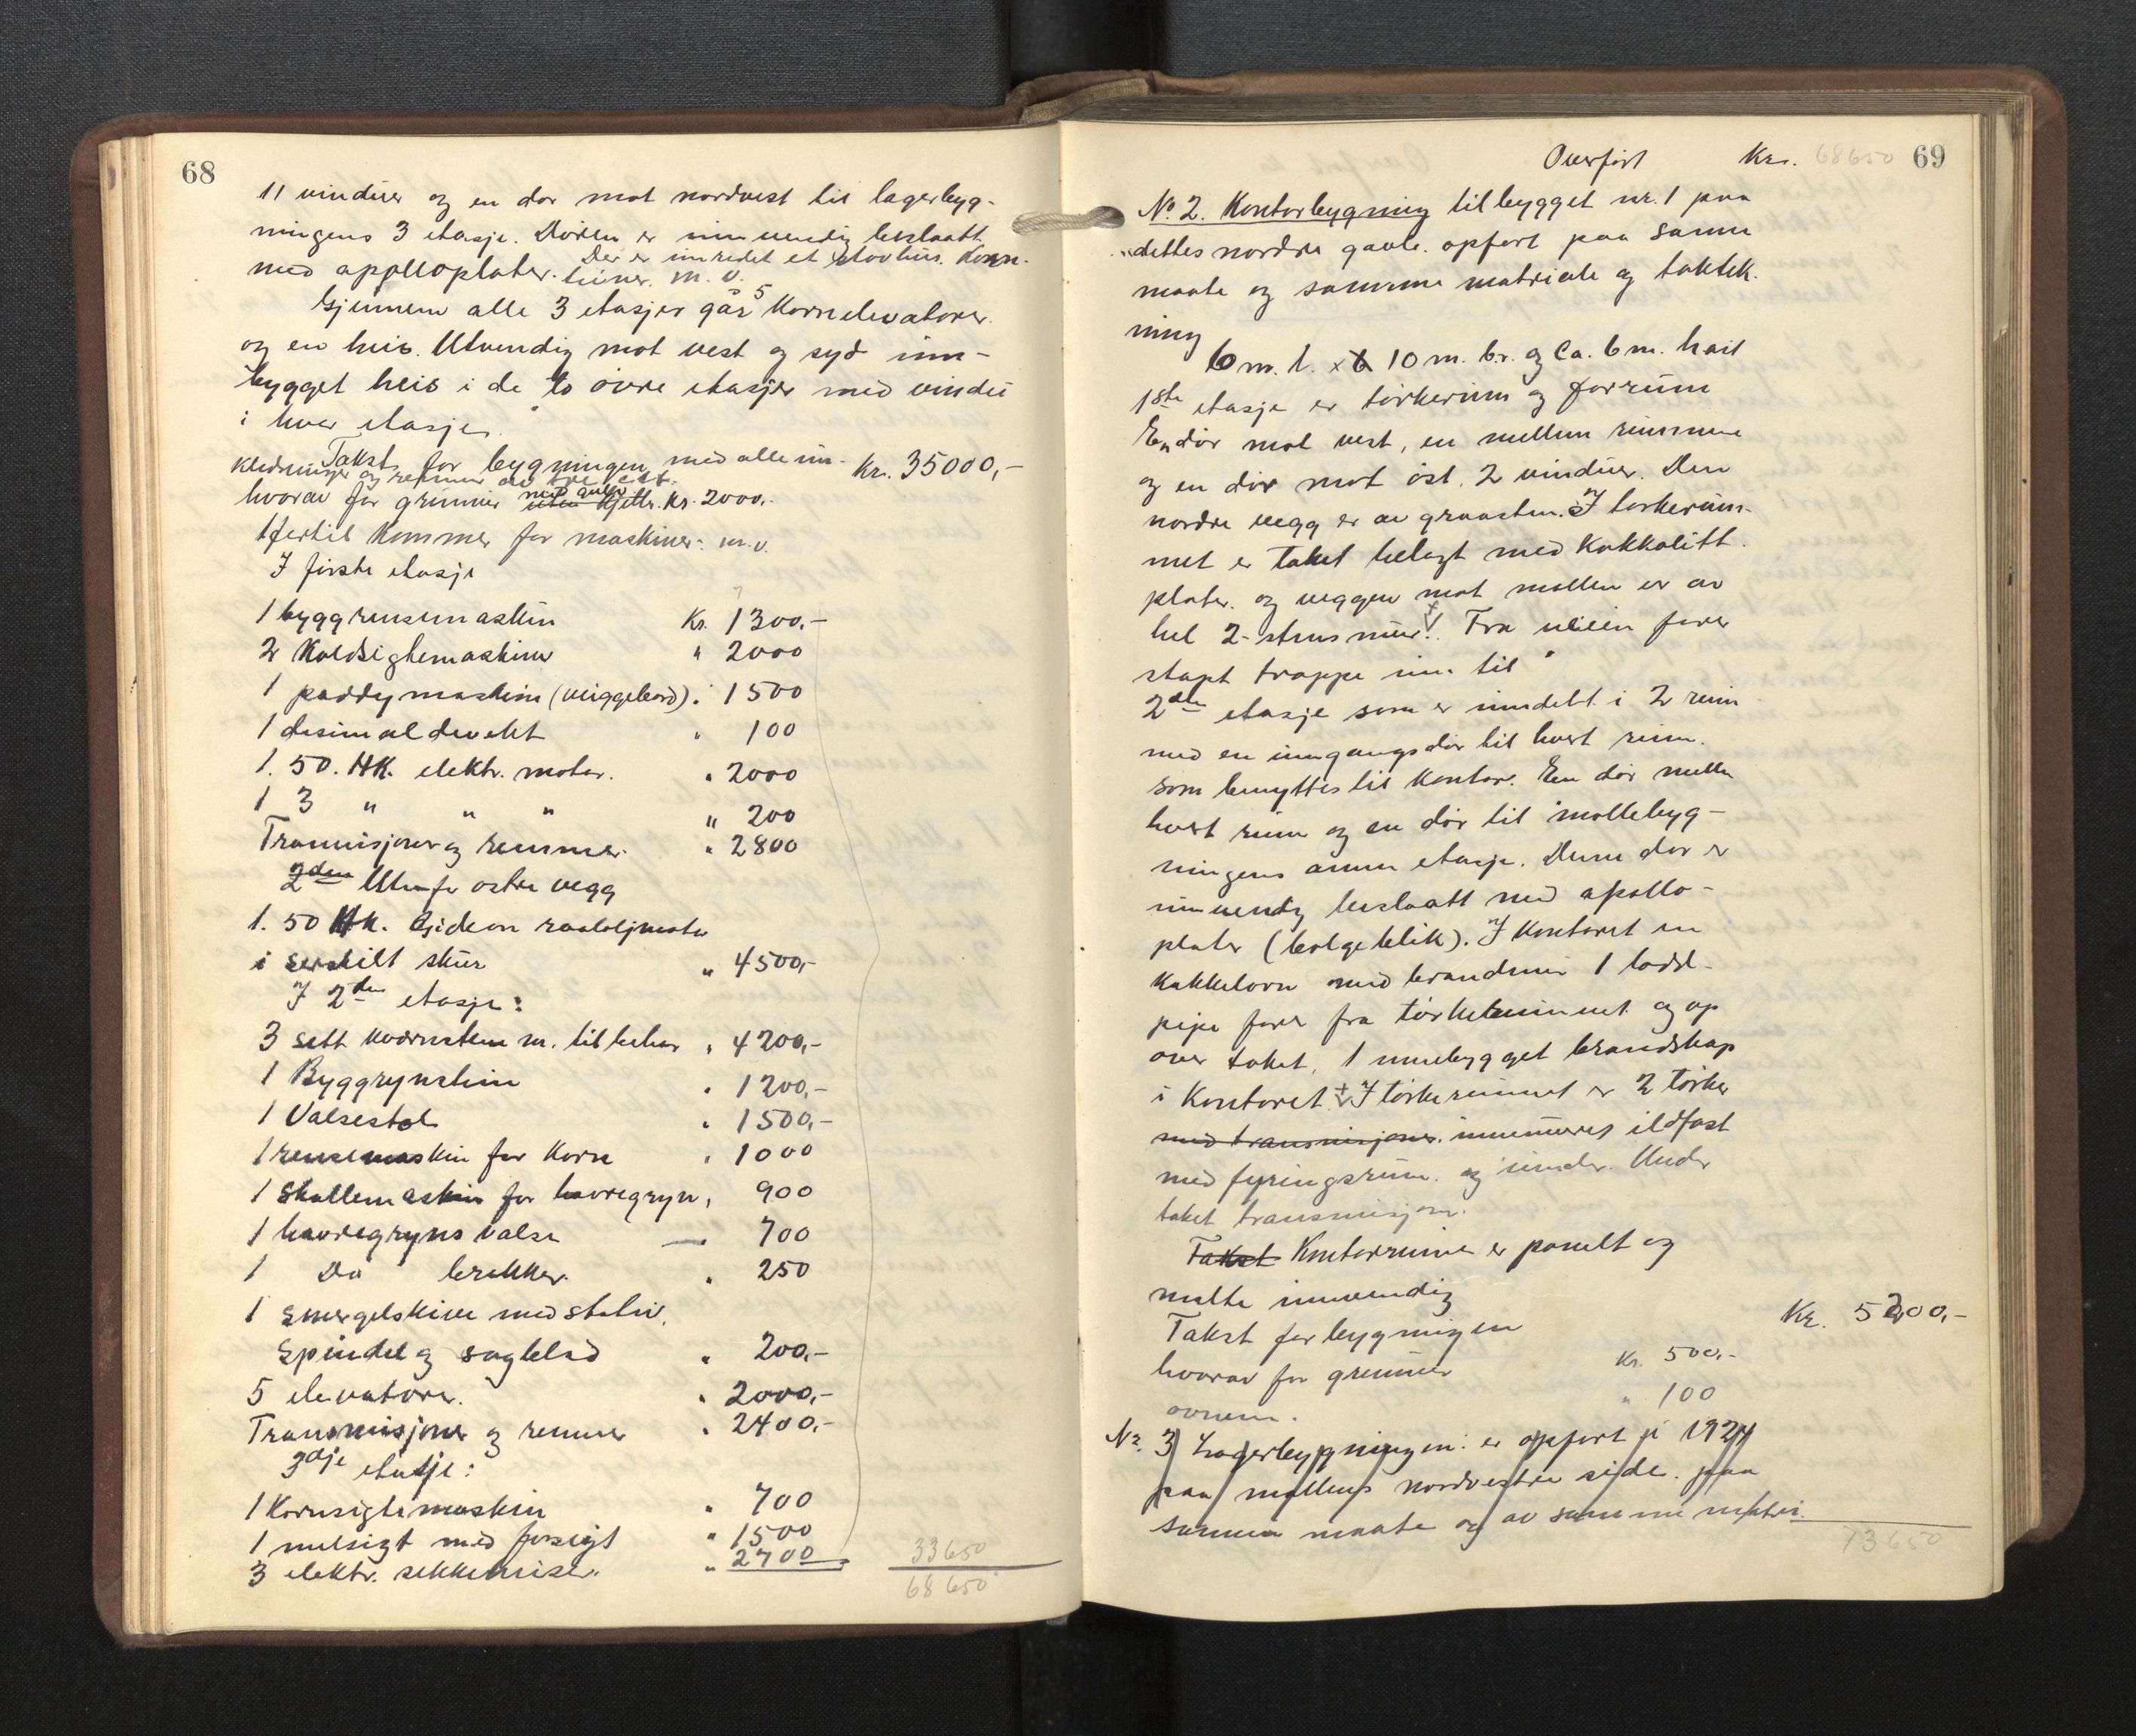 68
11 vinduer og en dør mot nordvest til lagerbyg-
ningens 3 etasje. Døren er innvendig beslaatt
med appolloplater. Der er innredet et støvhus. Korn-
biner. m. v.
Gjennem alle 3 etasjer går 5 Kornelevatorer
og en heis. Utvendig mot vest og syd inn-
bygget heis i de to øvre etasjer med vindu
i hver etasje.
Takst for bygningen med alle inn-
Kr. 35000,-
kledninger og renner av tre etc.
hvorav for grunner med gulv uten kjeller. Kr. 2000.-
Hertil kommer for maskiner: m.v.
I første etasje
1 byggrensemaskin Kr. 1300,-
2 Koldsigtemaskiner " 2000
1 paddymaskin (vuggebord) " 1500
1 desimaldevekt " 100
1. 50. HK. elektr. motor. " 2000
1 3 " " " " 200
Transmisjoner og remmer. " 2800
2den Utenfor østre vegg
1. 50 HK. Gideon raaoljmotor
i serskilt skur " 4500,-
I 2den etasje:
3 sett kvernstein m. tilbehør " 4200,-
1 Byggrynstein " 1200,-
1 Valsestol " 1500,-
1 rensemaskin for Korn " 1000
1 Skallemaskin for havregryn " 900
1 havregryns valse — 700
1 Do brekker. " 250
1 Smergelskive med stativ.
Spindel og sagblad " 200,-
5 elevatorer. " 2000,-
Transmisjoner og remmer " 2400,-
3dje etasje:
1 Kornsigtemaskin " 700
1 melsigt med forsigt " 1500
3 elektr. sekkeheiser. " 2700
33650
68650
Overført Kr. 68650 69
No. 2. Kontorbygning tilbygget nr. 1 paa
dettes nordre gavle. opført paa samme
maate og samme matriale og taktek-
ning
6 m. l. x 6 10 m. br. og Ca. 6 m. høit
1ste etasje er tørkerum og forrum
En dør mot vest, en mellem rummene
og en dør mot øst. 2 vinduer. Den
nordre vegg er av graasten. I tørkerum-
met er taket belagt med Kokkolitt-
plater. og veggen mot møllen er av
hel 2-stens mur. Fra veien fører
støpt trappe inn til
2den etasje som er inndelt i 2 rum
med en inngangsdør til hvert rum.
som benyttes til Kontor. En dør mellem
hvert rum og en dør til møllebyg-
ningens annen etasje. Denne dør er
innvendig beslaatt med apollo-
plater (bølgeblik). I Kontoret en
Kakkelovn med brandmur 1 lodd-
pipe fører fra tørkerummet og op
over taket. 1 innebygget brandskap
i Kontoret. I tørkerummet er 2 tørker
med transmisjoner. innmures ildfast
med fyringsrum. og under. Under
taket transmisjon.
Takst Kontorrummene er panelt og
malte innvendig
Takst for bygningen Kr. 5200,-
hvorav for grunner Kr. 500,-
ovnen. " 100
Nr. 3 Lagerbygningen: er opført i 1924
paa møllens nordvestre side. paa
samme maate og av samme matri-
73650